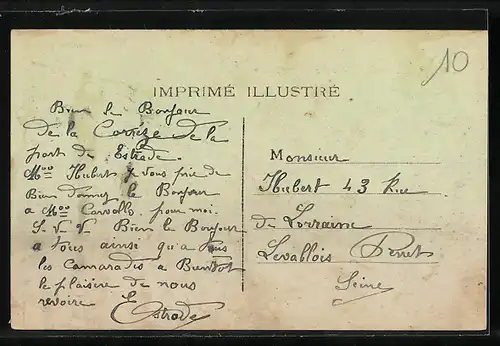 10
IMPRIMÉ ILLUSTRÉ
Bien le Bonjour
de la Corrèze de la
part de Estrade.
Moo Hubert Je vous prie de
Bien donner le Bonjour
a Moo Carvallo pour moi.
S. V. V. Bien le Bonjour
a Tous ainsi qu'a tous
les Camarades a Bientot
le plaisire de nous
revoire Estrade
Monsieur
Hubert 43 Rue
de Lorraine
Levallois Perret
Seine